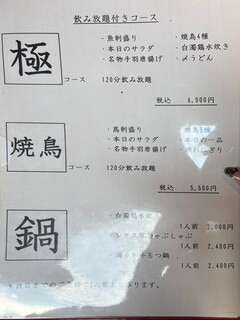 飲み放題付きコース
極
コース
・魚刺盛り
・本日のサラダ
・名物手羽唐揚げ
・焼鳥4種
・白濁鶏水炊き
・〆うどん
120分飲み放題
税込 6,000円
焼鳥
コース
・馬刺盛り
・本日のサラダ
・名物手羽唐揚げ
・焼鳥5種
・本日の一品
120分飲み放題
税込 5,500円
鍋
・白濁鶏水炊
1人前 2,000円
しゃぶしゃぶ
1人前 2,400円
もつ鍋
1人前 2,400円